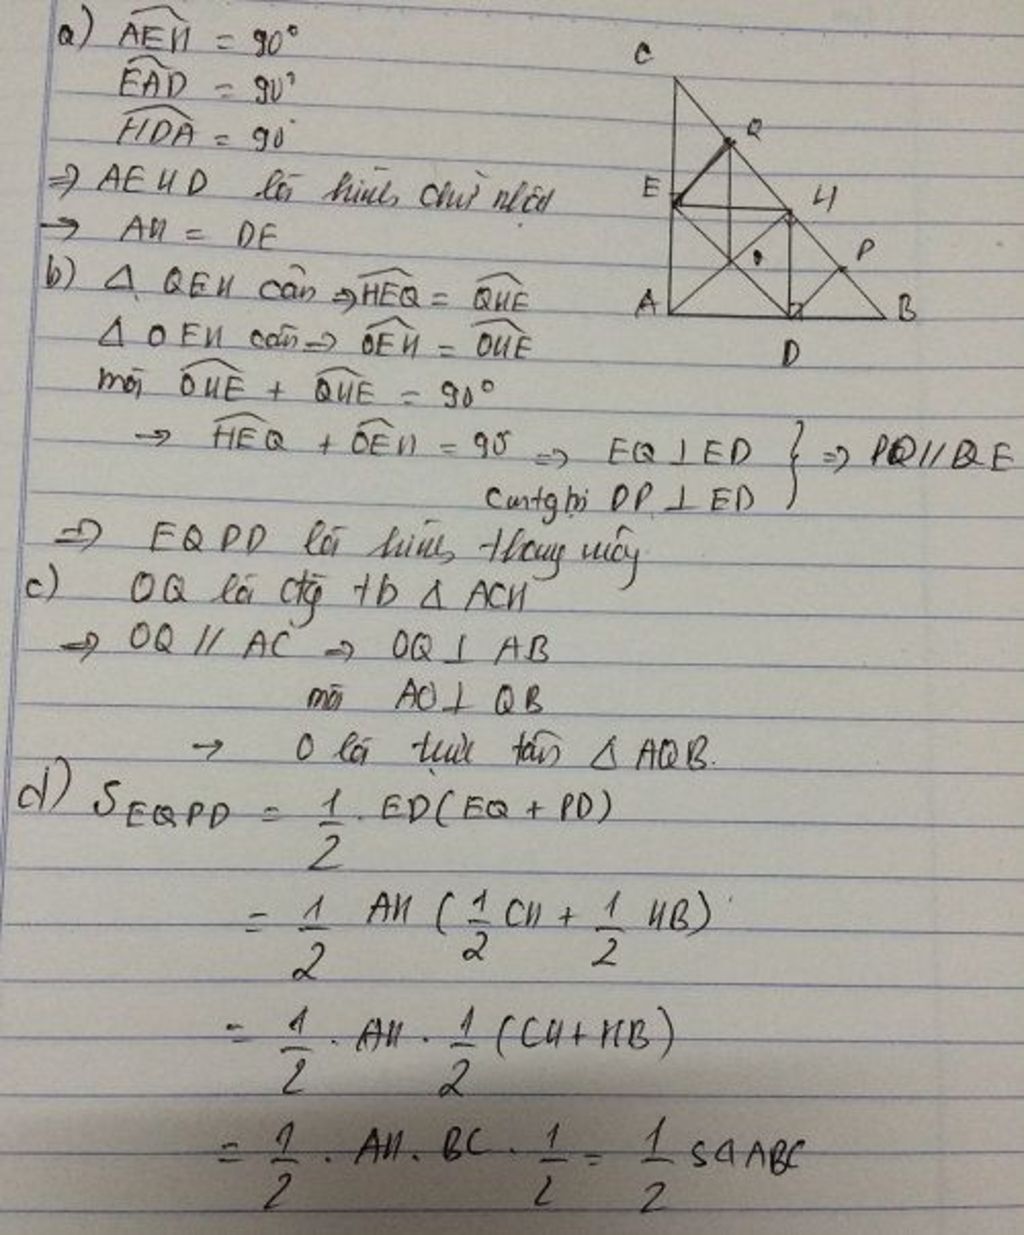 a) AEH = 90°
EAD = 90°
HDA = 90°
⇒ AEHD là hình chữ nhật
→ AH = DE
b) Δ QEH cân ⇒ HEQ = QHE
Δ OEH cân ⇒ OEH = OHE
mà OHE + QHE = 90°
→ HEQ + OEH = 90° ⇒ EQ ⊥ ED } ⇒ PD // QE
DP ⊥ ED
⇒ EQPD là hình thang vuông
c) OQ là đg tb Δ ACH
⇒ OQ // AC ⇒ OQ ⊥ AB
mà AO ⊥ QB
→ O là trực tâm Δ AQB.
d) S EQPD = 1/2 . ED (EQ + PD)
= 1/2 AH (1/2 CH + 1/2 HB)
= 1/2 . AH . 1/2 (CH + HB)
= 1/2 . AH . BC . 1/2 = 1/2 SΔABC
C
Q
E
H
O
P
A
B
D